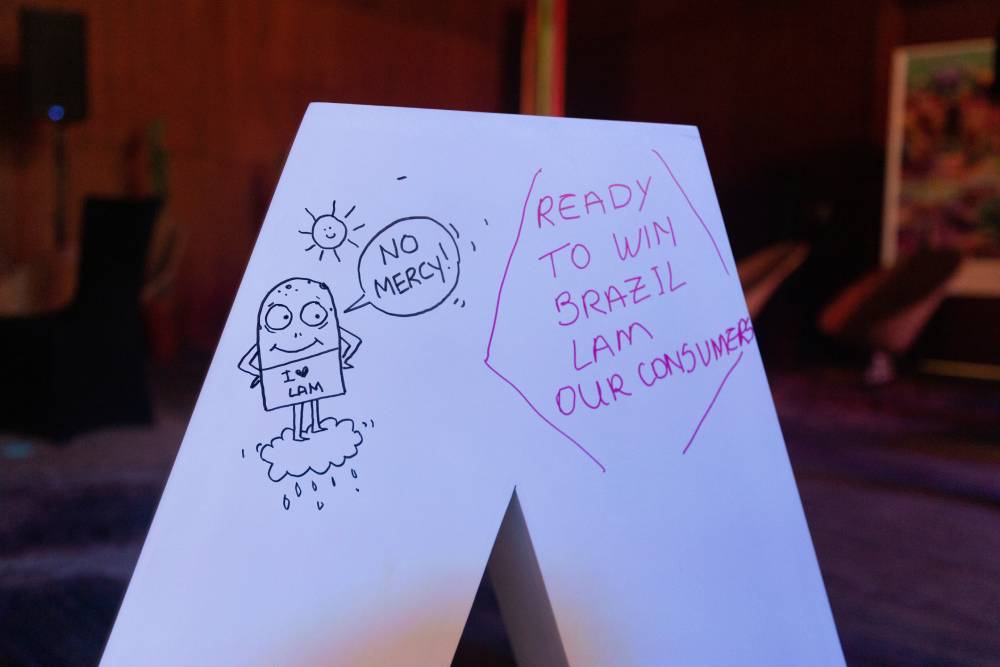 NO
MERCY!
I ♥
LAM
READY
TO WIN
BRAZIL
LAM
OUR CONSUMERS